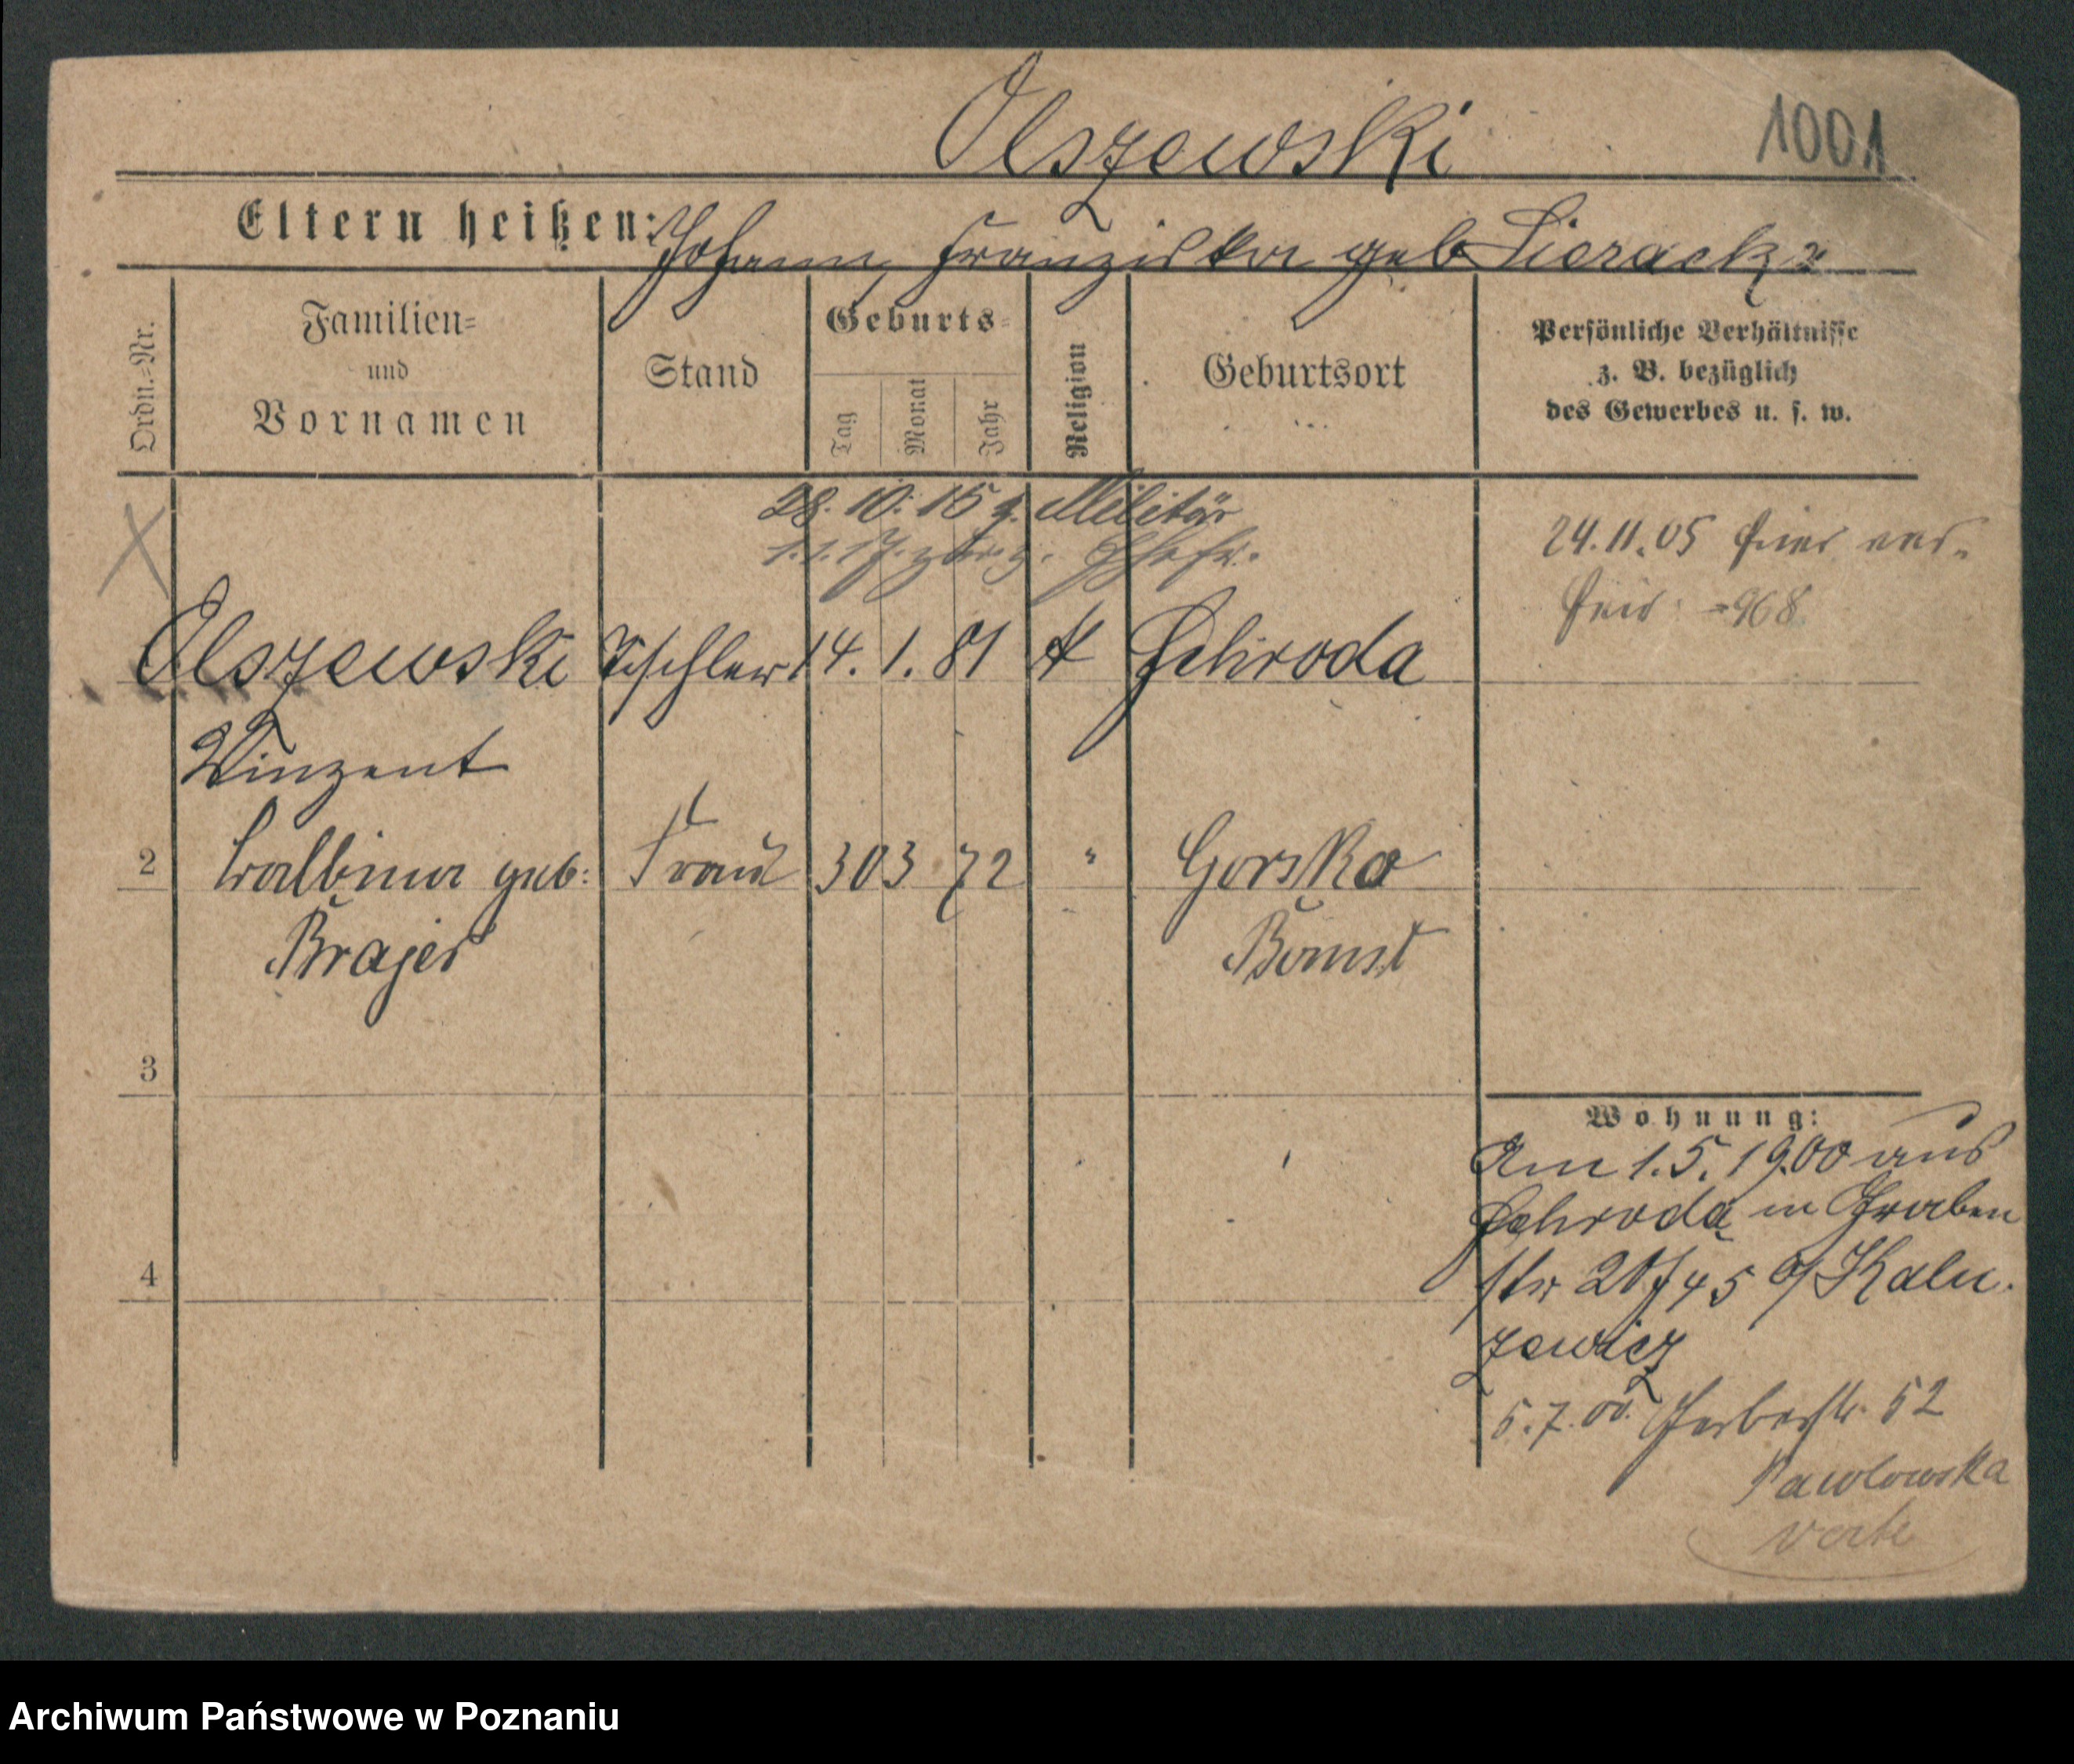 Olszewski 1001
Eltern heißen: Johann, Franziska geb Sieracka
Ordn.-Nr.
Familien-
und
Vornamen
Stand
Geburts-
Tag
Monat
Jahr
Religion
Geburtsort
Persönliche Verhältnisse
z. B. bezüglich
des Gewerbes u. s. w.
28. 10. 15 z. Militär
1. 1. 17
24. 11. 05 hier
968
Olszewski Tischler 14. 1. 81 K Schroda
Winzent
2 Balbina geb: Frau 30 3 72 " Gorsko
Brajer Bomst
3
4
Wohnung:
Am 1. 5. 1900 aus
Schroda in Graben
str 20 b/ Kalu.
zewicz
5. 7. 00. Gerberstr. 52
Pawlowska
verte
Archiwum Państwowe w Poznaniu